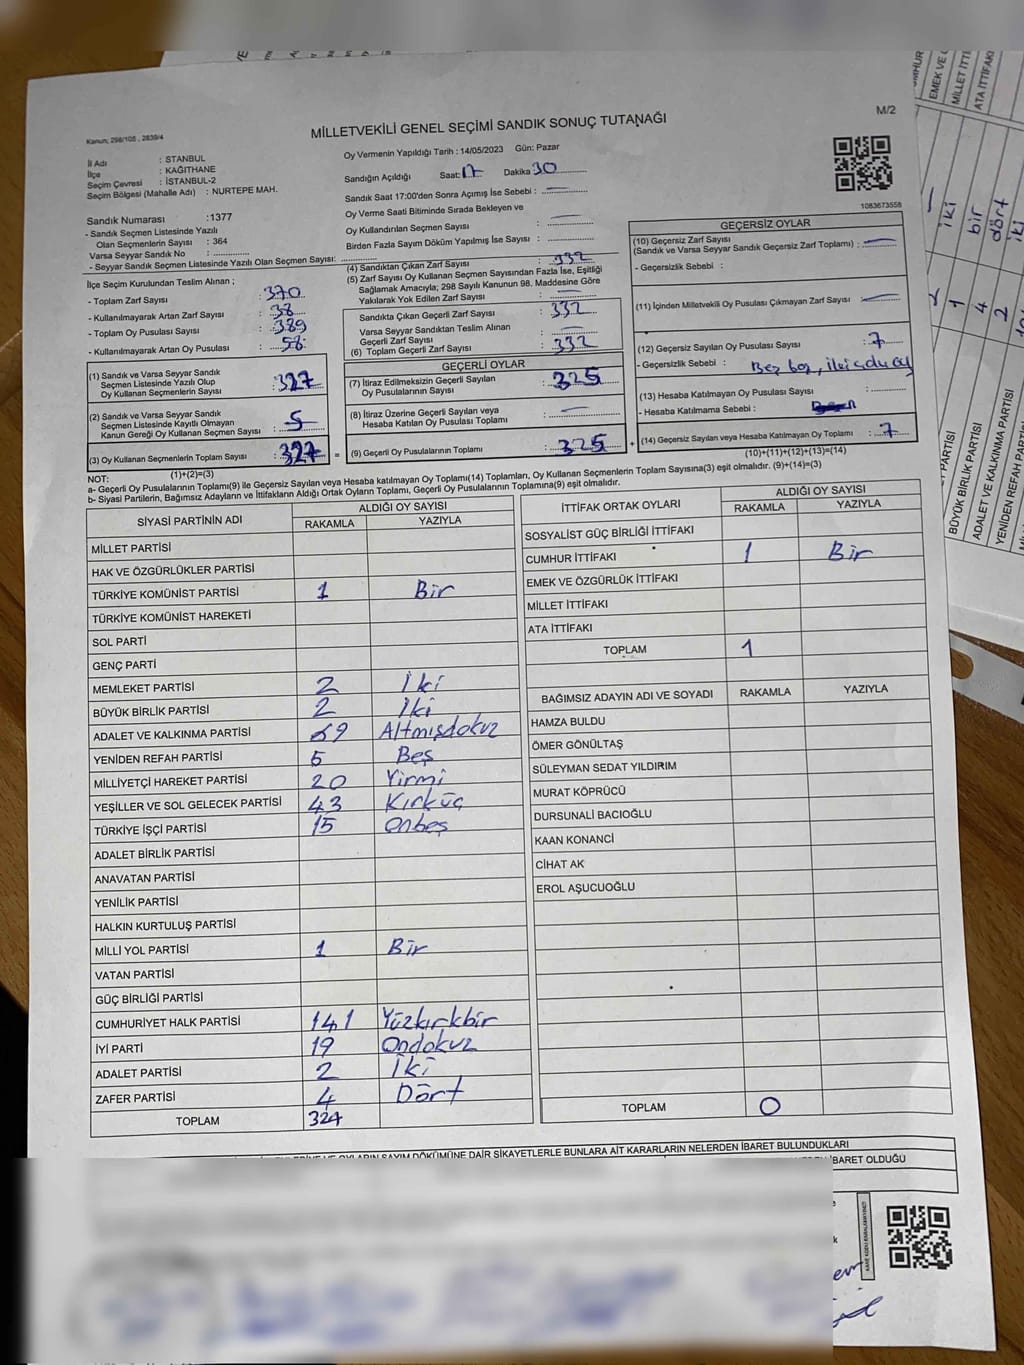 M/2
Kanun; 298/105 , 2839/4
MİLLETVEKİLİ GENEL SEÇİMİ SANDIK SONUÇ TUTANAĞI
İl Adı : STANBUL
İlçe : KAĞITHANE
Seçim Çevresi : İSTANBUL-2
Seçim Bölgesi (Mahalle Adı) : NURTEPE MAH.
Oy Vermenin Yapıldığı Tarih : 14/05/2023 Gün: Pazar
Sandığın Açıldığı Saat: 17 Dakika 30
Sandık Saat 17:00'den Sonra Açımış İse Sebebi : —
Oy Verme Saati Bitiminde Sırada Bekleyen ve
Oy Kullandırılan Seçmen Sayısı : —
Birden Fazla Sayım Döküm Yapılmış İse Sayısı : —
1083673558
Sandık Numarası :1377
- Sandık Seçmen Listesinde Yazılı
Olan Seçmenlerin Sayısı : 364
Varsa Seyyar Sandık No :
- Seyyar Sandık Seçmen Listesinde Yazılı Olan Seçmen Sayısı:
İlçe Seçim Kurulundan Teslim Alınan ;
- Toplam Zarf Sayısı : 370
- Kullanılmayarak Artan Zarf Sayısı : 38
- Toplam Oy Pusulası Sayısı : 389
- Kullanılmayarak Artan Oy Pusulası : 58
(1) Sandık ve Varsa Seyyar Sandık
Seçmen Listesinde Yazılı Olup
Oy Kullanan Seçmenlerin Sayısı : 327
(2) Sandık ve Varsa Seyyar Sandık
Seçmen Listesinde Kayıtlı Olmayan
Kanun Gereği Oy Kullanan Seçmen Sayısı : 5
(3) Oy Kullanan Seçmenlerin Toplam Sayısı : 327 =
(1)+(2)=(3)
(4) Sandıktan Çıkan Zarf Sayısı : 332
(5) Zarf Sayısı Oy Kullanan Seçmen Sayısından Fazla İse, Eşitliği
Sağlamak Amacıyla; 298 Sayılı Kanunun 98. Maddesine Göre
Yakılarak Yok Edilen Zarf Sayısı : —
Sandıkta Çıkan Geçerli Zarf Sayısı : 332
Varsa Seyyar Sandıktan Teslim Alınan
Geçerli Zarf Sayısı : —
(6) Toplam Geçerli Zarf Sayısı : 332
GEÇERLİ OYLAR
(7) İtiraz Edilmeksizin Geçerli Sayılan
Oy Pusulalarının Sayısı : 325
(8) İtiraz Üzerine Geçerli Sayılan veya
Hesaba Katılan Oy Pusulası Toplamı : —
(9) Geçerli Oy Pusulalarının Toplamı : 325 +
GEÇERSİZ OYLAR
(10) Geçersiz Zarf Sayısı
(Sandık ve Varsa Seyyar Sandık Geçersiz Zarf Toplamı) : —
- Geçersizlik Sebebi :
(11) İçinden Milletvekili Oy Pusulası Çıkmayan Zarf Sayısı : —
(12) Geçersiz Sayılan Oy Pusulası Sayısı : 7
- Geçersizlik Sebebi :
(13) Hesaba Katılmayan Oy Pusulası Sayısı :
- Hesaba Katılmama Sebebi :
(14) Geçersiz Sayılan veya Hesaba Katılmayan Oy Toplamı : 7
(10)+(11)+(12)+(13)=(14)
NOT:
a- Geçerli Oy Pusulalarının Toplamı(9) ile Geçersiz Sayılan veya Hesaba katılmayan Oy Toplamı(14) Toplamları, Oy Kullanan Seçmenlerin Toplam Sayısına(3) eşit olmalıdır. (9)+(14)=(3)
b- Siyasi Partilerin, Bağımsız Adayların ve İttifakların Aldığı Ortak Oyların Toplamı, Geçerli Oy Pusulalarının Toplamına(9) eşit olmalıdır.
SİYASİ PARTİNİN ADI ALDIĞI OY SAYISI
RAKAMLA YAZIYLA
MİLLET PARTİSİ
HAK VE ÖZGÜRLÜKLER PARTİSİ
TÜRKİYE KOMÜNİST PARTİSİ 1 Bir
TÜRKİYE KOMÜNİST HAREKETİ
SOL PARTİ
GENÇ PARTİ
MEMLEKET PARTİSİ 2 İki
BÜYÜK BİRLİK PARTİSİ 2 İki
ADALET VE KALKINMA PARTİSİ 69 Altmışdokuz
YENİDEN REFAH PARTİSİ 5 Beş
MİLLİYETÇİ HAREKET PARTİSİ 20 Yirmi
YEŞİLLER VE SOL GELECEK PARTİSİ 43 Kırküç
TÜRKİYE İŞÇİ PARTİSİ 15 Onbeş
ADALET BİRLİK PARTİSİ
ANAVATAN PARTİSİ
YENİLİK PARTİSİ
HALKIN KURTULUŞ PARTİSİ
MİLLİ YOL PARTİSİ 1 Bir
VATAN PARTİSİ
GÜÇ BİRLİĞİ PARTİSİ
CUMHURİYET HALK PARTİSİ 141 Yüzkırkbir
İYİ PARTİ 19 Ondokuz
ADALET PARTİSİ 2 İki
ZAFER PARTİSİ 4 Dört
TOPLAM 324
İTTİFAK ORTAK OYLARI ALDIĞI OY SAYISI
RAKAMLA YAZIYLA
SOSYALİST GÜÇ BİRLİĞİ İTTİFAKI
CUMHUR İTTİFAKI 1 Bir
EMEK VE ÖZGÜRLÜK İTTİFAKI
MİLLET İTTİFAKI
ATA İTTİFAKI
TOPLAM 1
BAĞIMSIZ ADAYIN ADI VE SOYADI RAKAMLA YAZIYLA
HAMZA BULDU
ÖMER GÖNÜLTAŞ
SÜLEYMAN SEDAT YILDIRIM
MURAT KÖPRÜCÜ
DURSUNALİ BACIOĞLU
KAAN KONANCİ
CİHAT AK
EROL AŞUCUOĞLU
TOPLAM 0
OYLARIN SAYIM DÖKÜMÜNE DAİR ŞİKAYETLERLE BUNLARA AİT KARARLARIN NELERDEN İBARET BULUNDUKLARI
İBARET OLDUĞU
EMEK VE
MİLLET İTTİ
ATA İTTİFAKI
iki
1 bir
4 dört
2
PARTİSİ
BÜYÜK BİRLİK PARTİSİ
ADALET VE KALKINMA PARTİSİ
YENİDEN REFAH PARTİSİ